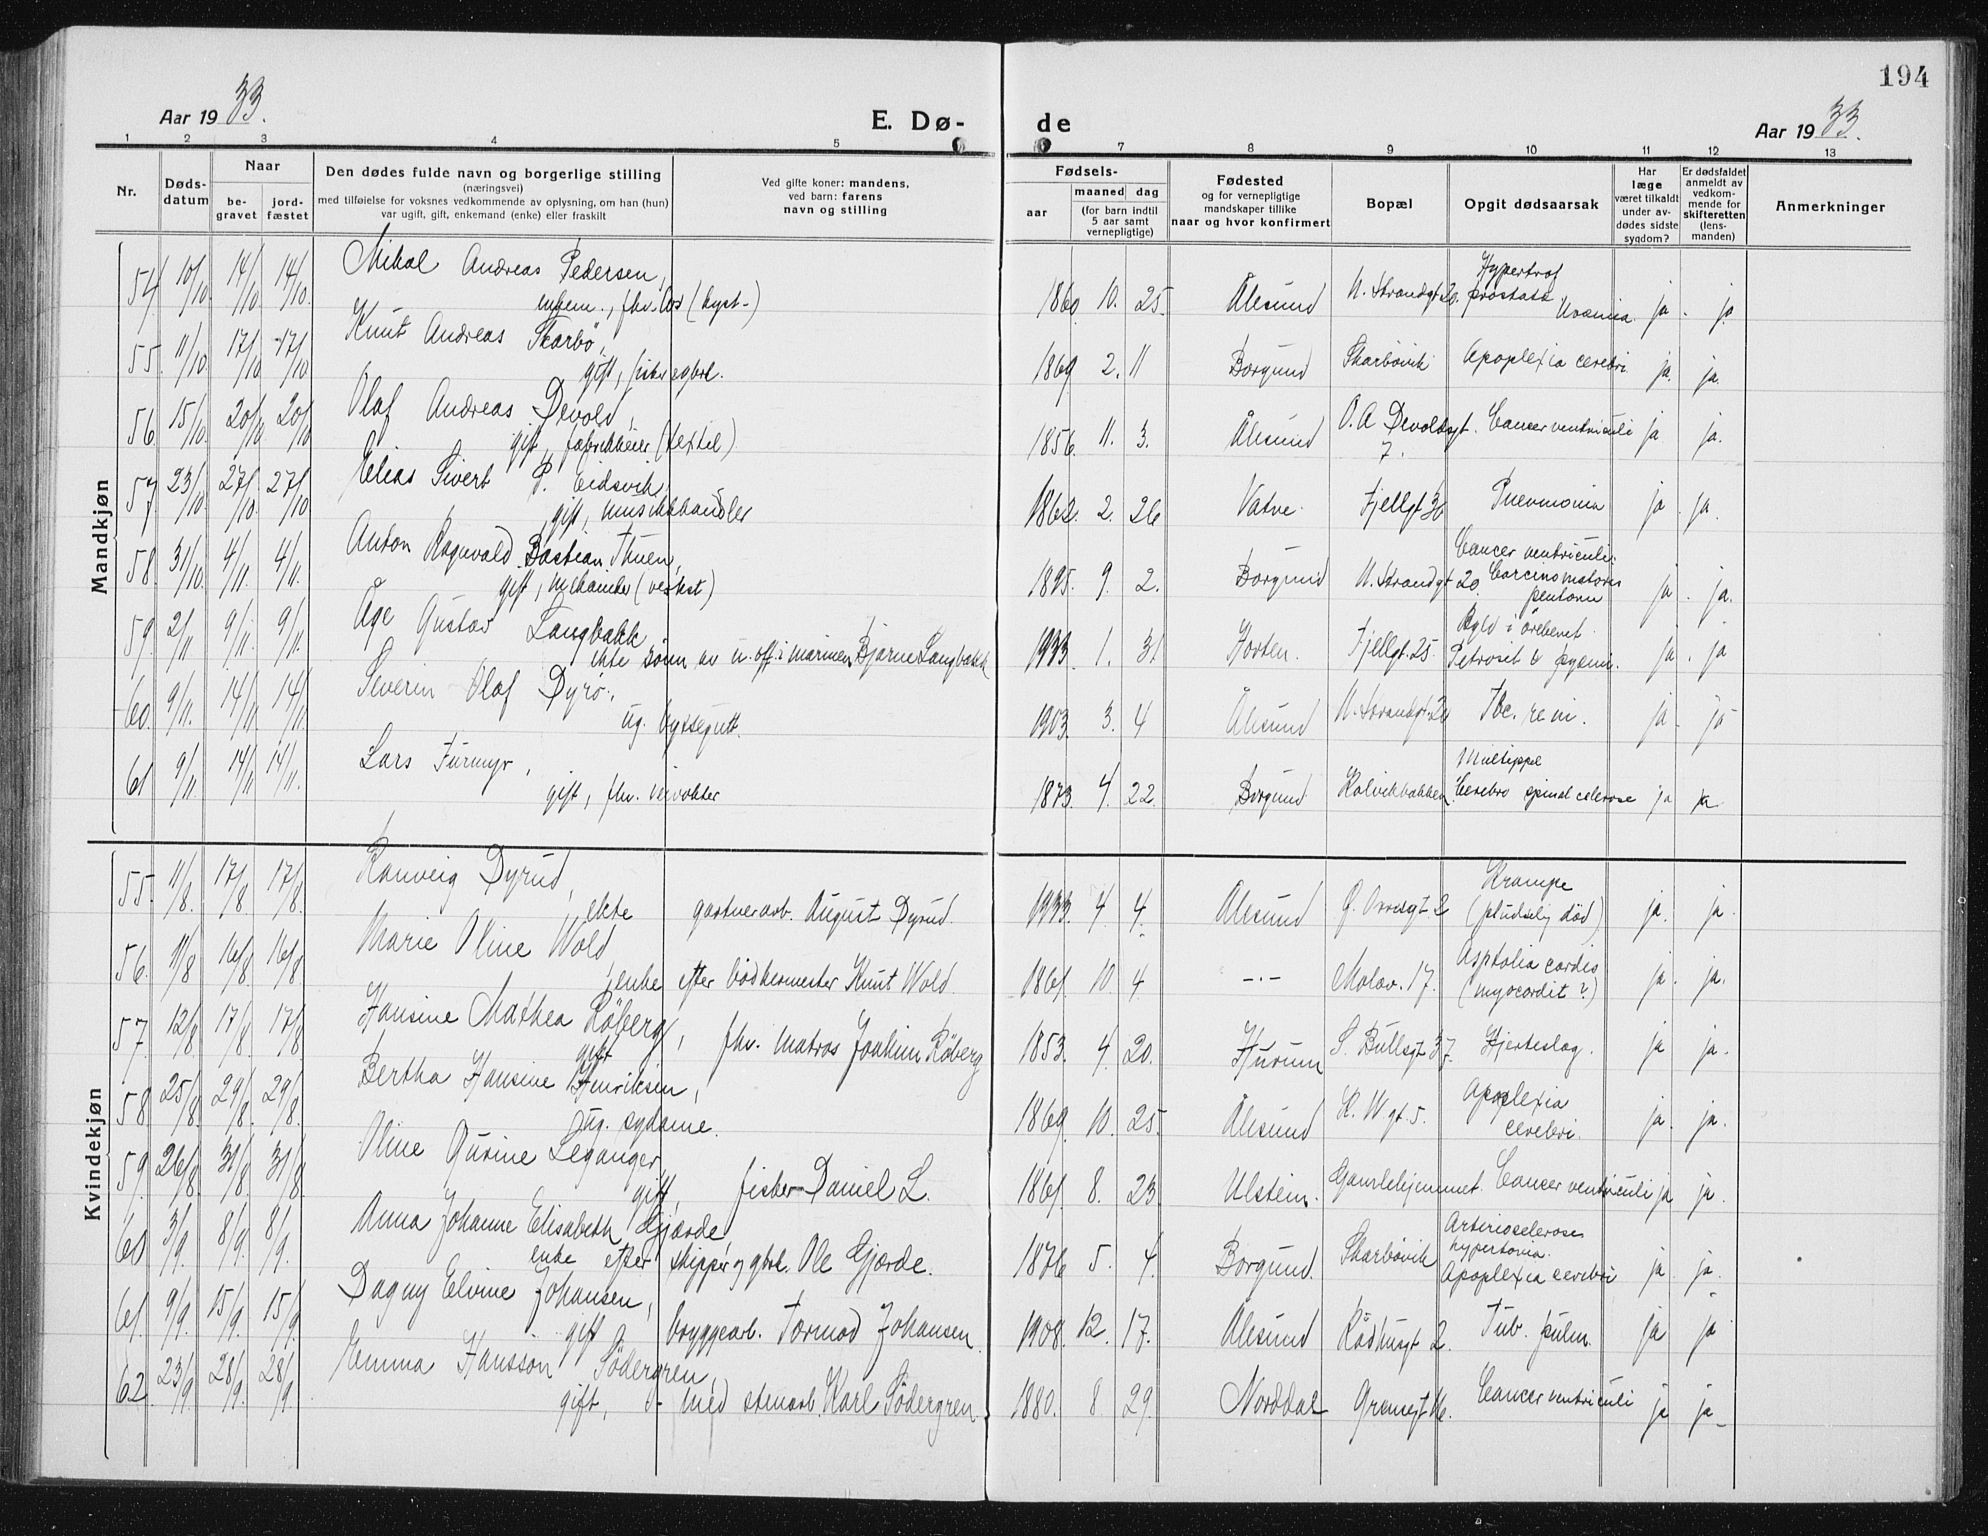 194
Aar 1933.
E. Dø-
de
Aar 1933.
1 2 3 4 5 7 8 9 10 11 12 13
Nr.
Døds-
datum
Naar
be-
gravet
jord-
fæstet
Den dødes fulde navn og borgerlige stilling
(næringsvei)
med tilføielse for voksnes vedkommende av oplysning, om han (hun)
var ugift, gift, enkemand (enke) eller fraskilt
Ved gifte koner: mandens,
ved barn: farens
navn og stilling
Fødsels-
aar
maaned dag
(for barn indtil
5 aar samt
vernepligtige)
Fødested
og for vernepligtige
mandskaper tillike
naar og hvor konfirmert
Bopæl
Opgit dødsaarsak
Har
læge
været tilkaldt
under av-
dødes sidste
sygdom?
Er dødsfaldet
anmeldt av
vedkom-
mende for
skifteretten
(lens-
manden)
Anmerkninger
Mandkjøn
54 10/10 14/10 14/10. Mikal Andreas Pedersen,
1860. 10. 25. Ålesund N. Strandgt. 20. Hypertrof prostata Uræmia. ja. ja
55. 11/10. 17/10 17/10 Knut Andreas Skarbø,
gift, fisker og brl. 1869 2. 11 Borgund Skarbøvik Apoplexia cerebri. ja. ja.
56 15/10. 20/10. 20/10 Olaf Andreas Devold,
gift, fabrikkeier (textil) 1856. 11. 3. Ålesund O. A Devoldsgt. 7. Cancer ventriculi ja ja.
57 23/10 27/10. 27/10 Elias Sivert P. Eidsvik,
gift, musikkhandler 1862. 2. 26 Vatne. Fjellgt 36 Pneumonia ja. ja.
58. 31/10. 4/11. 4/11. Anton Ragnvald Bastian Thuen,
gift, mekaniker (verkst) 1895. 9. 2. Borgund N. Strandgt 20. Cancer ventriculi. ja. ja.
59. 2/11 9/11. 9/11. Åge Gustav Langbakk
ekte sønn av u.off. i marinen Bjarne Langbakk 1933. 1. 31 Horten. Fjellgt. 25. ja. ja
60. 9/11. 14/11. 14/11 Severin Olaf Dyrø,
ug. byssegutt. 1903. 3. 4 Ålesund N. Strandgt. 20 Tbc. reni. ja. ja
61 9/11. 14/11 14/11. Lars Furmyr,
gift, fhv. veivokter 1873. 4. 22. Borgund Kolvikbakken. Multippel Cerebro spinal sclerose ja ja
Kvindekjøn
55. 11/8. 17/8 17/8. Ranveig Dyrud,
ekte gartnerarb. August Dyrud. 1933. 4 4. Ålesund Krampe (pludselig død) ja. ja.
56. 11/8 16/8 16/8 Marie Oline Wold,
enke efter bødkermester Knut Wold. 1861. 10. 4 -"- Molov. 17. Asystolia cordis (myocardit?) ja. ja.
57. 12/8 17/8. 17/8 Hansine Mathea Røberg,
gift fhv. matros Joakim Røberg 1853. 4. 20. Hurum S. Bullsgt 37. Hjerteslag. ja ja.
58 25/8 29/8. 29/8. Bertha Hansine Henriksen,
ug. sydame. 1869. 10. 25. Ålesund K. W gt. 5. Apoplexia cerebri. ja. ja.
59. 26/8 31/8. 31/8 Oline Gurine Leganger
gift, fisker Daniel L. 1861. 8. 23 Ulstein. Gamlehjemmet. Cancer ventriculi ja ja.
60 3/9. 8/9. 8/9. Anna Johanne Elisabeth Gjærde,
enke efter skipper og gbrl. Ole Gjærde. 1876 5. 4. Borgund. Skarbøvik Arteriosclerose hypertonia. Apoplexia cerebri ja. ja.
61. 9/9. 15/9. 15/9. Dagny Elvine Johansen,
gift bryggearb. Tormod Johansen 1908. 12. 17. Ålesund Rådhusgt 2. Tub. pulm. ja ja
62. 23/9. 28/9. 28/9. Emma Hansson Södergren,
gift, med stenarb. Karl Södergren. 1880. 8. 29. Norddal Grensegt 16. Cancer ventriculi ja ja